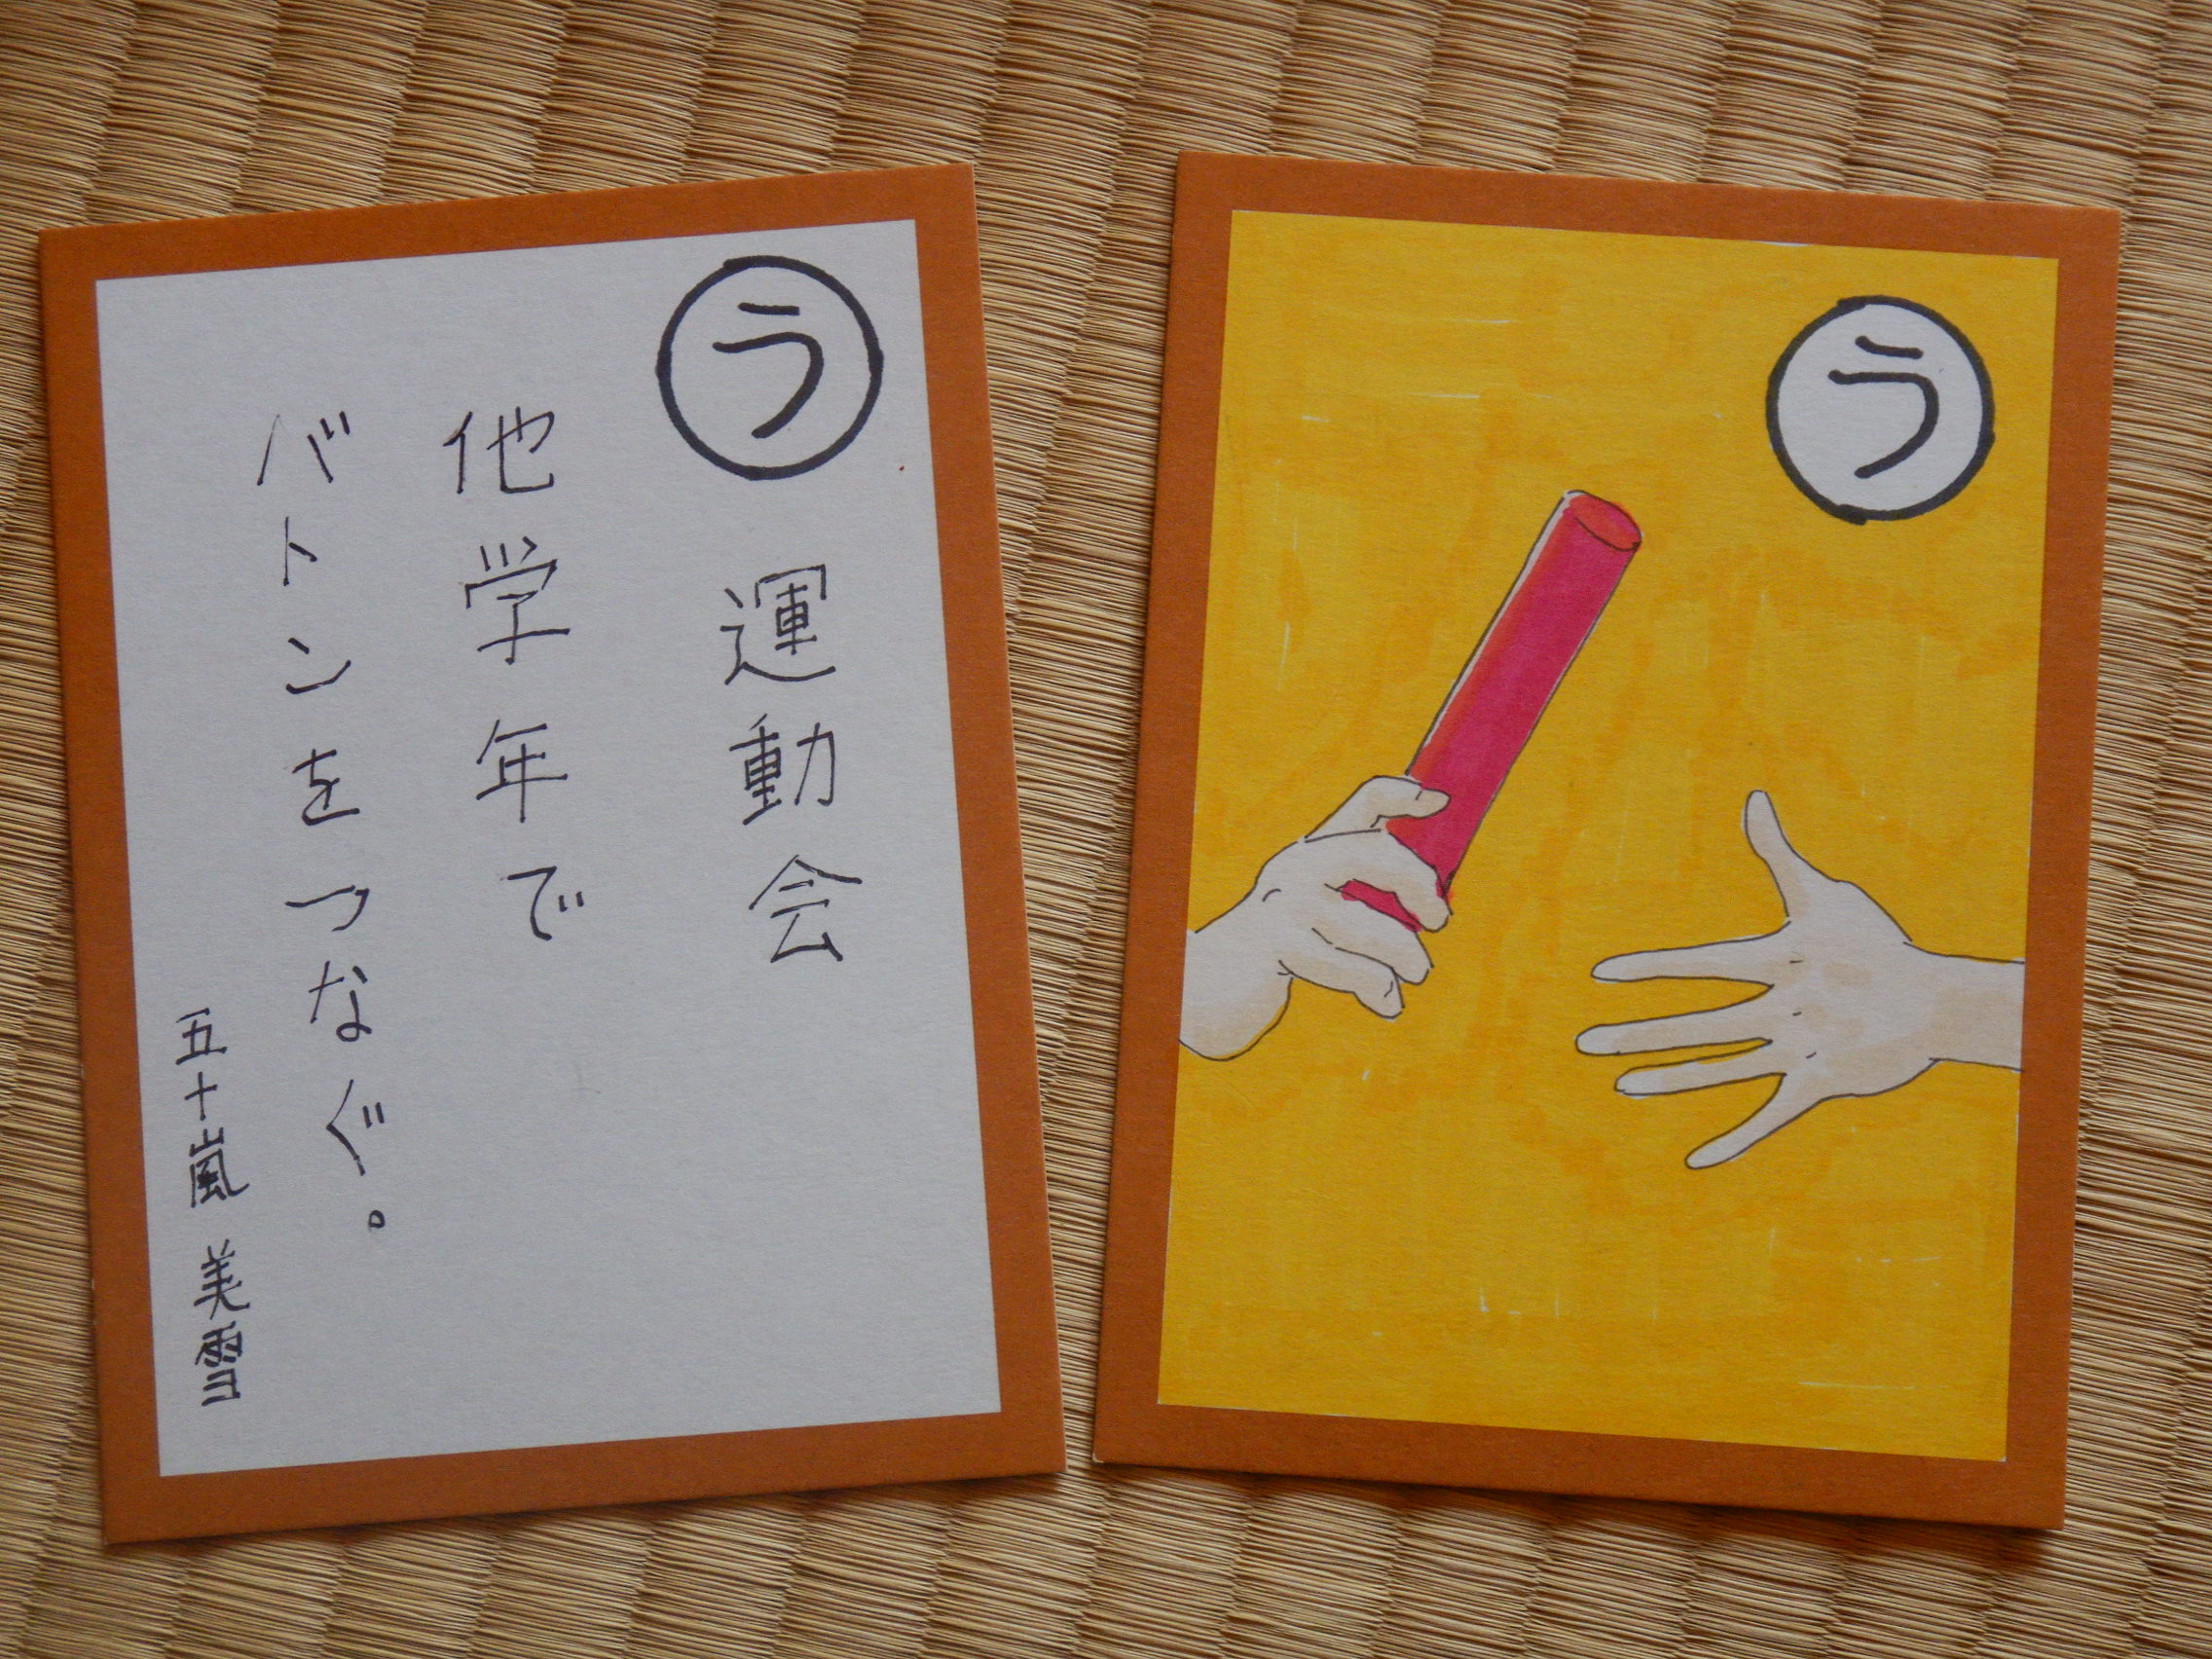 う
運動会
他学年で
バトンをつなぐ。
五十嵐 美雪
う